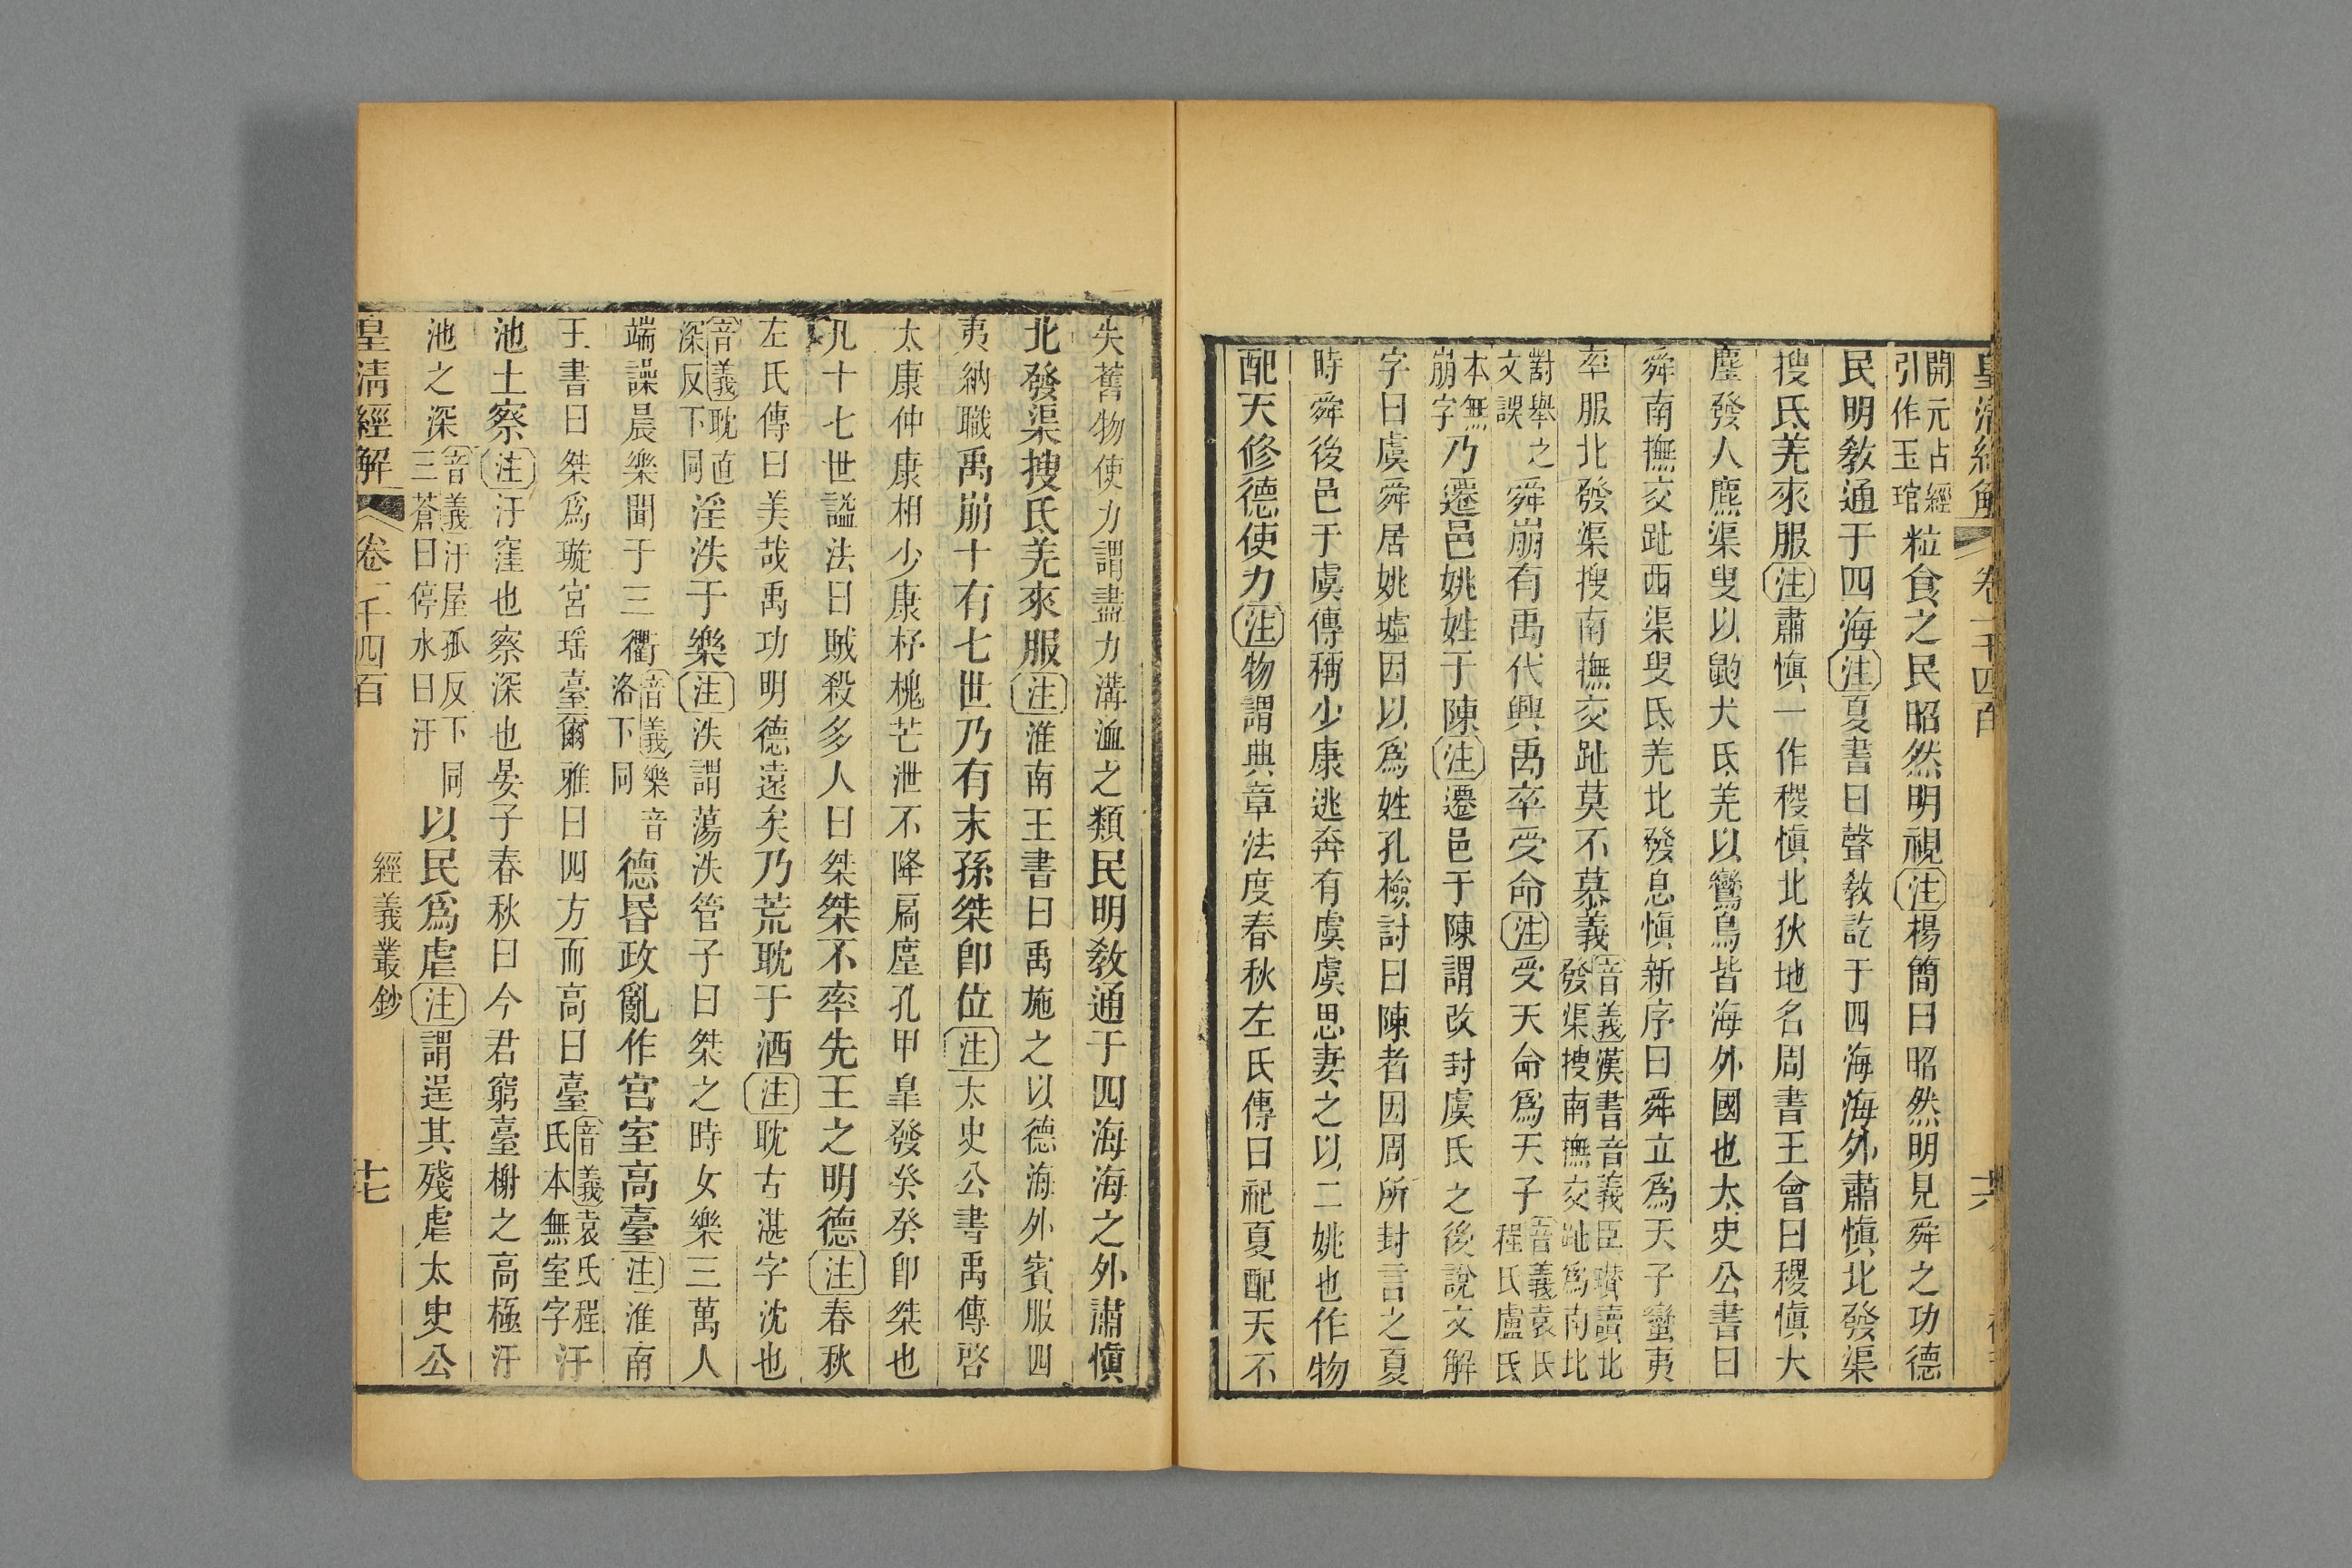 皇清經解 卷一千四百 共
開元占經引作玉琯粒食之民昭然明視注楊簡曰昭然明見舜之功德
民明敎通于四海注夏書曰聲敎訖于四海海外肅愼北發渠
搜氐羌來服注肅愼一作稷愼北狄地名周書王會曰稷愼大
麈發人麃渠叟以䶂犬氐羌以鸞鳥皆海外國也太史公書曰
舜南撫交趾西渠叟氐羌北發息愼新序曰舜立爲天子蠻夷
率服北發渠搜南撫交趾莫不慕義音義漢書音義臣瓚讀北發渠搜南撫交趾爲南北
對舉之文誤舜崩有禹代興禹卒受命注受天命爲天子音義袁氏程氏盧氏
本無崩字乃遷邑姚姓于陳注遷邑于陳謂改封虞氏之後說文解
字曰虞舜居姚墟因以爲姓孔檢討曰陳者因周所封言之夏
時舜後邑于虞傳稱少康逃奔有虞虞思妻之以二姚也作物
配天修德使力注物謂典章法度春秋左氏傳曰祀夏配天不
失舊物使力謂盡力溝洫之類民明敎通于四海海之外肅愼
北發渠搜氐羌來服注淮南王書曰禹施之以德海外賓服四
夷納職禹崩十有七世乃有末孫桀卽位注太史公書禹傳啓
太康仲康相少康杼槐芒泄不降扃廑孔甲皐發癸癸卽桀也
凡十七世謚法曰賊殺多人曰桀桀不率先王之明德注春秋
左氏傳曰美哉禹功明德遠矣乃荒耽于酒注耽古湛字沈也
音義耽直深反下同淫泆于樂注泆謂蕩泆管子曰桀之時女樂三萬人
端譟晨樂聞于三衢音義樂音洛下同德昬政亂作宮室高臺注淮南
王書曰桀爲璇宮瑤臺爾雅曰四方而高曰臺音義袁氏程氏本無室字汙
池土察注汙窪也察深也晏子春秋曰今君窮臺榭之高極汙
池之深音義汙屋孤反下同三蒼曰停水曰汙以民爲虐注謂逞其殘虐太史公
皇清經解 卷一千四百 經義叢鈔 十七